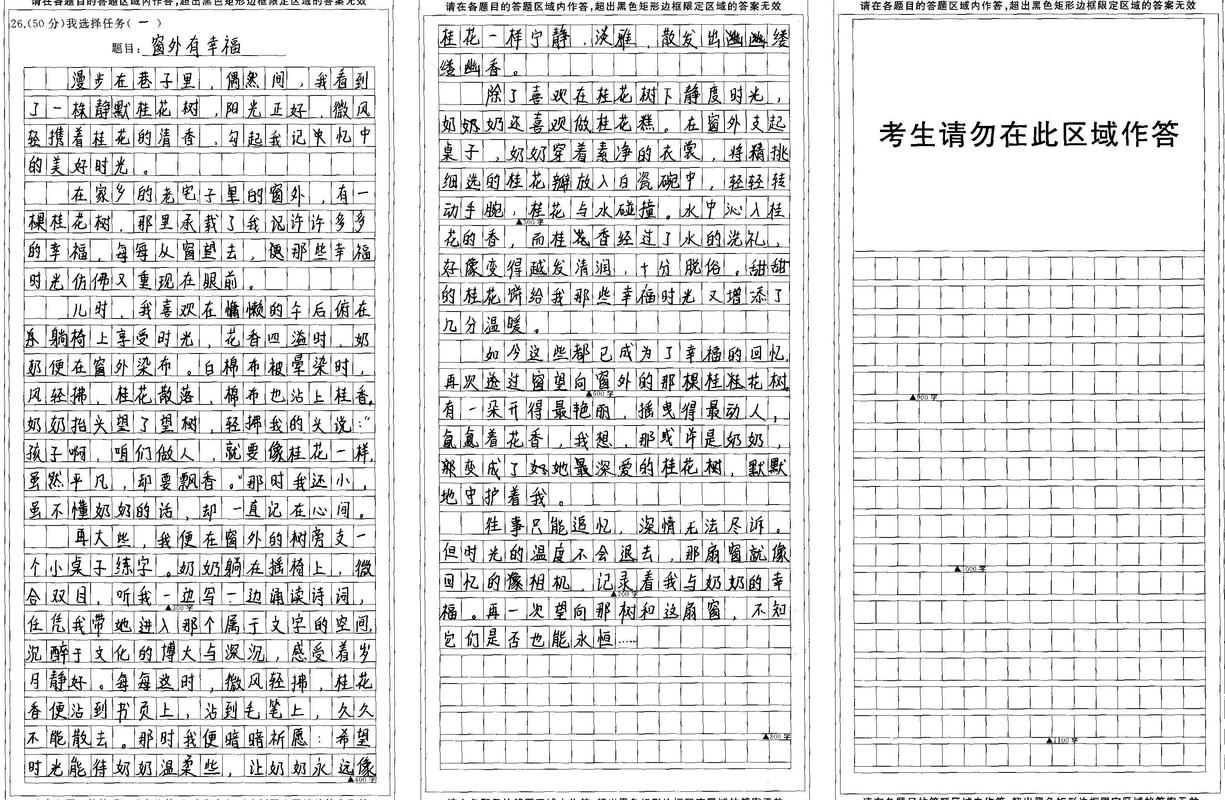 请在各题目的答题区域内作答,超出黑色矩形边框限定区域的答案无效
26.(50分)我选择任务(一)
题目:窗外有幸福
漫步在巷子里,偶然间,我看到
了一株静默桂花树,阳光正好,微风
轻携着桂花的清香,勾起我记忆中
的美好时光。
在家乡的老宅子里的窗外,有一
棵桂花树,那里承载了我说许许多多
的幸福,每每从窗望去,便那些幸福
时光仿佛又重现在眼前。
儿时,我喜欢在慵懒的午后俯在
躺椅上享受时光,花香四溢时,奶
奶便在窗外染布。白棉布被晕染时,
风轻拂,桂花散落,棉布也沾上桂香。
奶奶抬头望了望树,轻拂我的头说:“
孩子啊,咱们做人,就要像桂花一样,
虽然平凡,却要飘香。”那时我还小,
虽不懂奶奶的话,却一直记在心间。
再大些,我便在窗外的树旁支一
个小桌子练字。奶奶躺在摇椅上,微
合双目,听我一边写一边诵读诗词,
任凭我带她进入那个属于文字的空间,
▲300字
沉醉于文化的博大与深沉,感受着岁
月静好。每每这时,微风轻拂,桂花
香便沾到书页上,沾到毛笔上,久久
不能散去。那时我便暗暗祈愿:希望
时光能待奶奶温柔些,让奶奶永远像
▲400字
请在各题目的答题区域内作答,超出黑色矩形边框限定区域的答案无效
桂花一样宁静,淡雅,散发出幽幽缕
缕幽香。
除了喜欢在桂花树下静度时光,
奶奶奶还喜欢做桂花糕。在窗外支起
桌子,奶奶穿着素净的衣裳,将精挑
细选的桂花瓣放入白瓷碗中,轻轻转
动手腕,桂花与水碰撞。水中沁入桂
▲500字
花的香,而桂花香经过了水的洗礼,
好像变得越发清润,十分脱俗。甜甜
的桂花饼给我那些幸福时光又增添了
几分温暖。
如今这些都已成为了幸福的回忆,
再次透过窗望向窗外的那棵桂桂花树。
▲600字
有一朵开得最艳丽,摇曳得最动人,
氤氲着花香,我想,那或许是奶奶,
那变成了好她最深爱的桂花树,默默
地守护着我。
往事只能追忆,深情无法尽诉。
但时光的温度不会退去,那扇窗就像
回忆的像相机,记录着我与奶奶的幸
▲700字
福。再一次望向那树和这扇窗,不知
它们是否也能永恒……
▲800字
请在各题目的答题区域内作答,超出黑色矩形边框限定区域的答案无效
考生请勿在此区域作答
▲900字
▲1000字
▲1100字